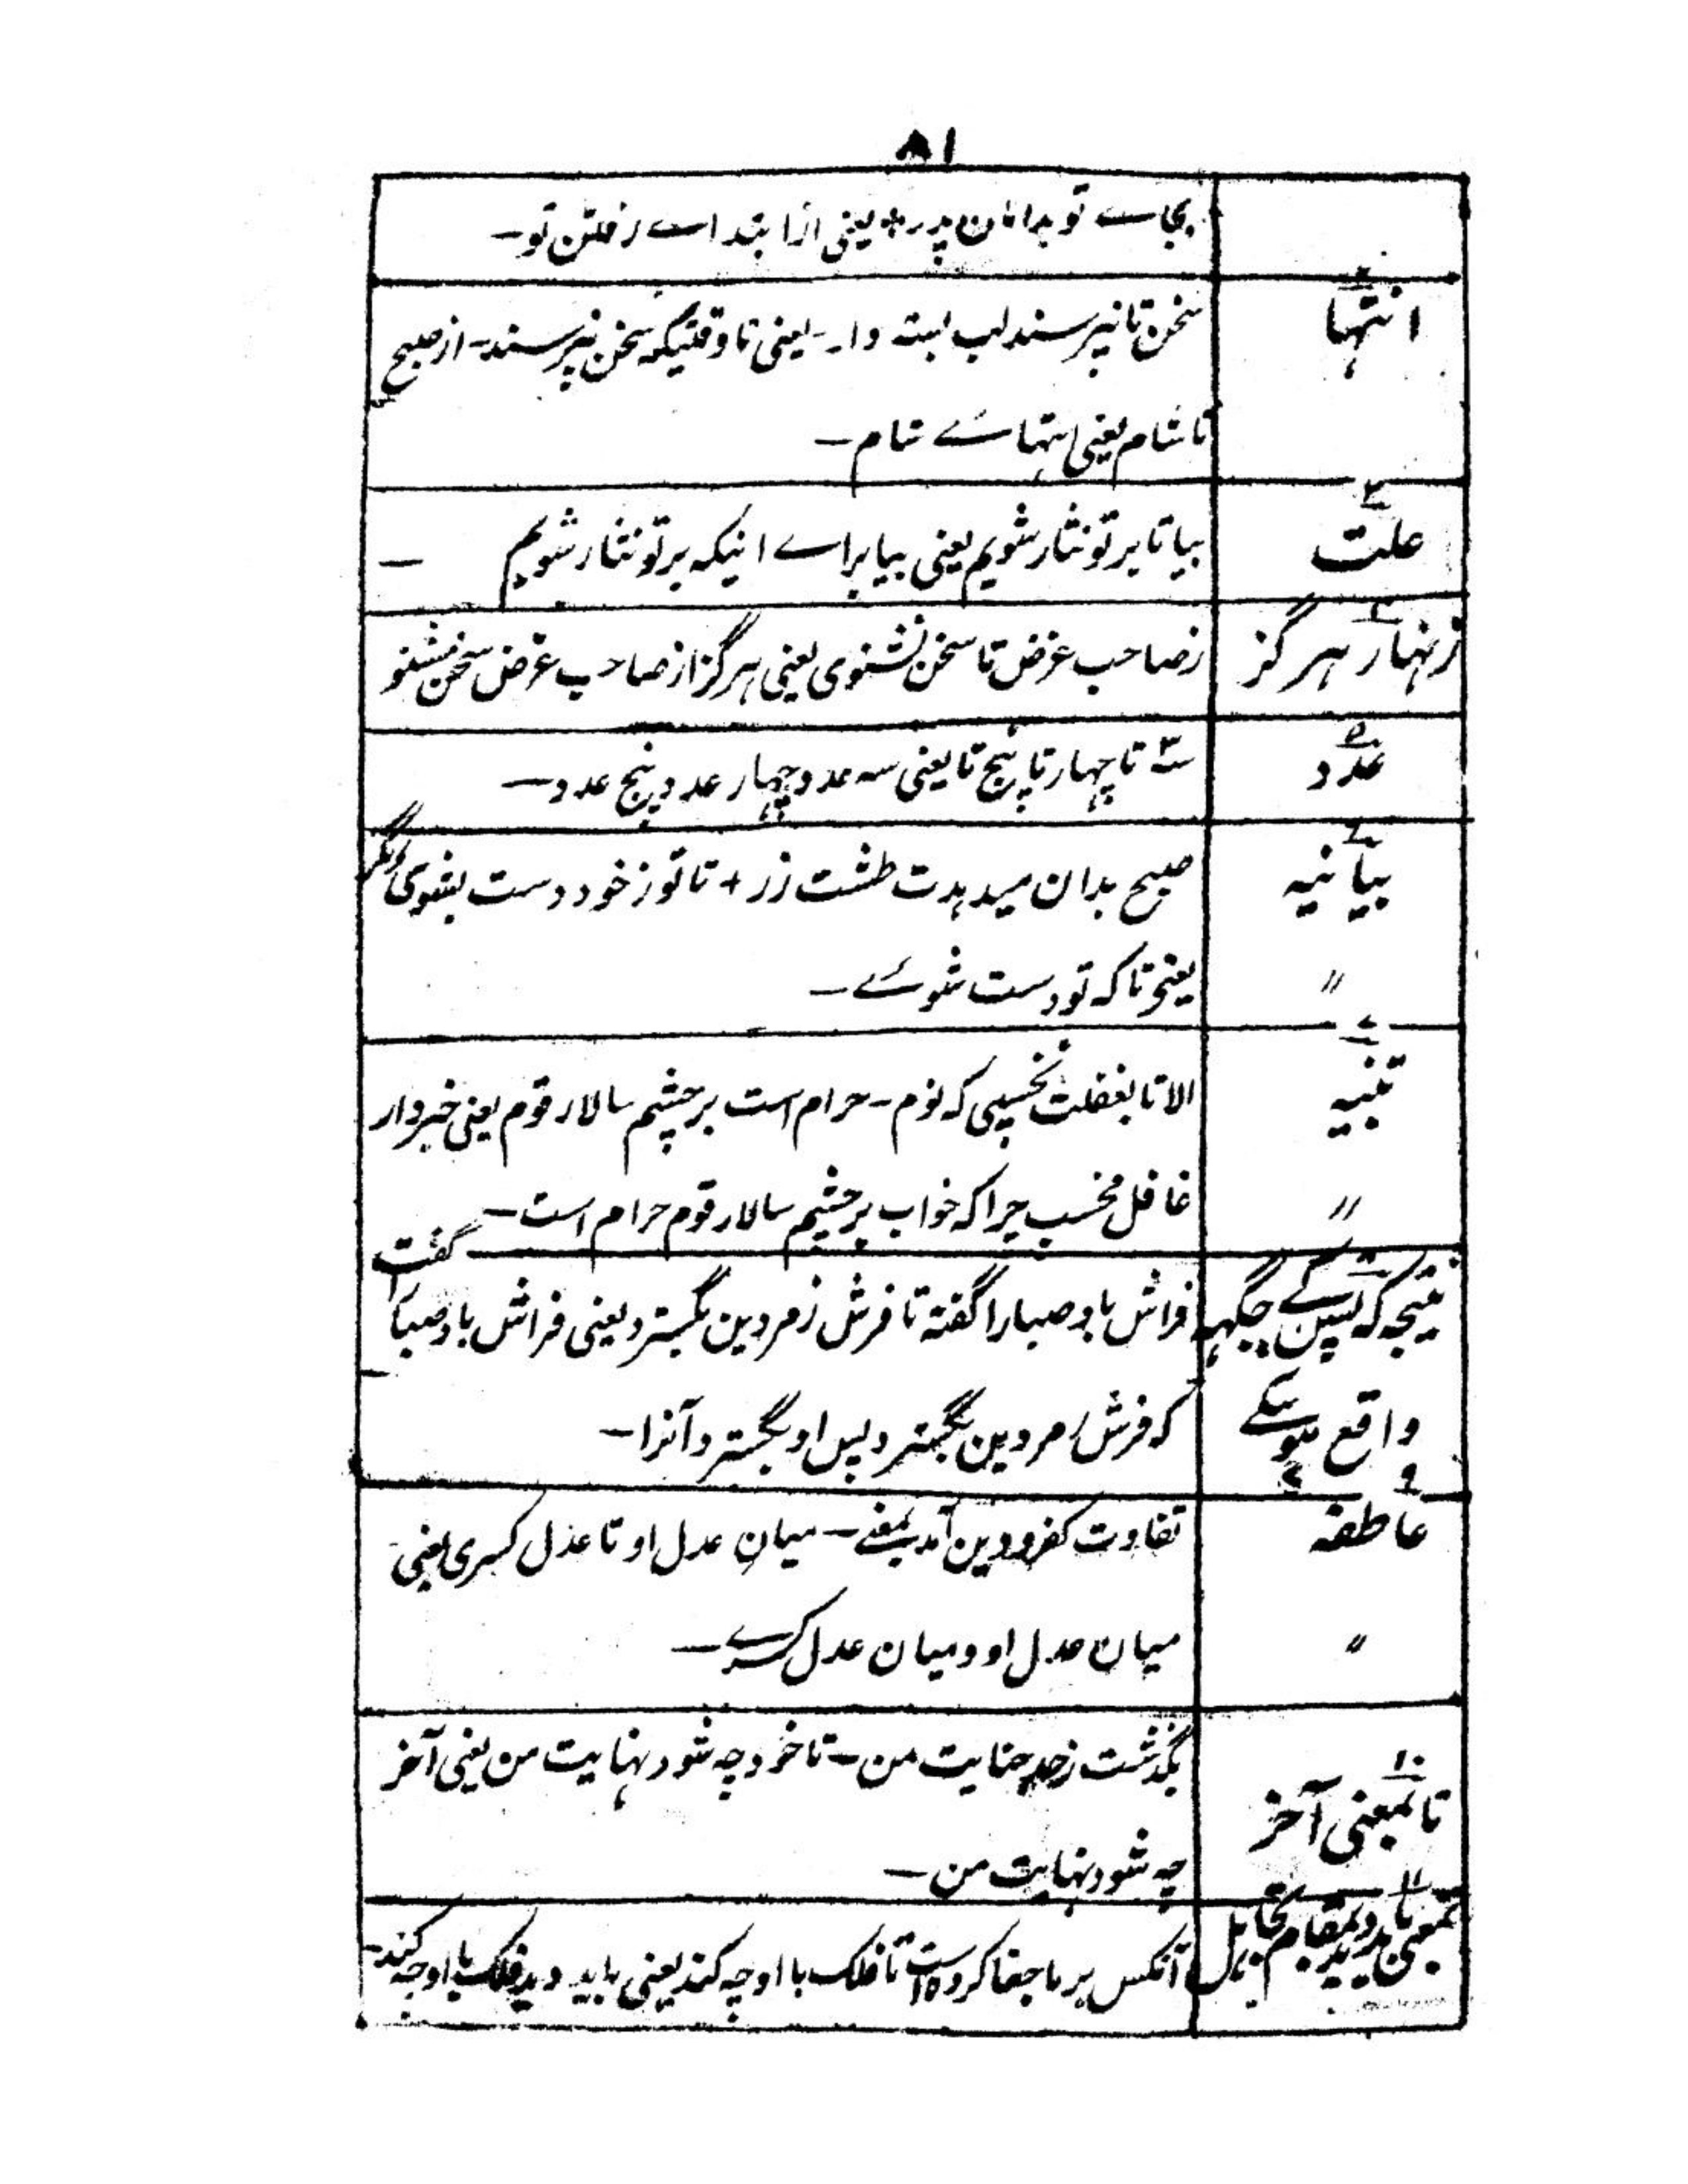 ۸۱
بجاے تو بدامان پدر + یعنی از ابتداے رفتن تو۔
۲
انتہا
سخن تا نپرسند لب بستہ دار۔ یعنی تا وقتیکہ سخن نپرسند۔ از صبح
تا شام یعنی انتہاے شام۔
۳
علت
بیا تا بر تو نثار شویم یعنی بیا براے اینکہ بر تو نثار شویم ۔
۴
زنہار ہرگز
ز صاحب غرض تا سخن نشنوی یعنی ہرگز از صاحب غرض سخن مشنو
۵
عدد
سہ تا چہار تا پنج تا یعنی سہ عدد چہار عدد پنج عدد۔
۶
بیانیہ
صبح بدان میدہدت طشت زر + تا تو ز خود دست بشوی مگر
〃
یعنی تا کہ تو دست شوئے۔
۷
تنبیہ
الا تا بغفلت نخسپی کہ نوم۔ حرام است بر چشم سالار قوم یعنی خبردار
〃
غافل مخسب چرا کہ خواب بر چشم سالار قوم حرام است۔
۸
نتیجہ کہ پس کے جگہہ
فراش باد صبا را گفتہ تا فرش زمردین بگسترد یعنی فراش باد صبا را گفت
واقع ہوئیکے
کہ فرش زمردین بگسترد پس او بگسترد آنرا۔
۹
عاطفہ
تفاوت کفر و دین آمد بمعنے۔ میان عدل او تا عدل کسری یعنی
〃
میان عدل او و میان عدل کسرے۔
۱۰
تا بمعنی آخر
بگذشت ز حد جنایت من۔ تا خود چہ شود نہایت من یعنی آخر
چہ شود نہایت من۔
۱۱
بمعنی باید دید بمقام
آنکس بر ما جفا کردہ است تا فلک با او چہ کند یعنی باید دید فلک با او چہ کند۔